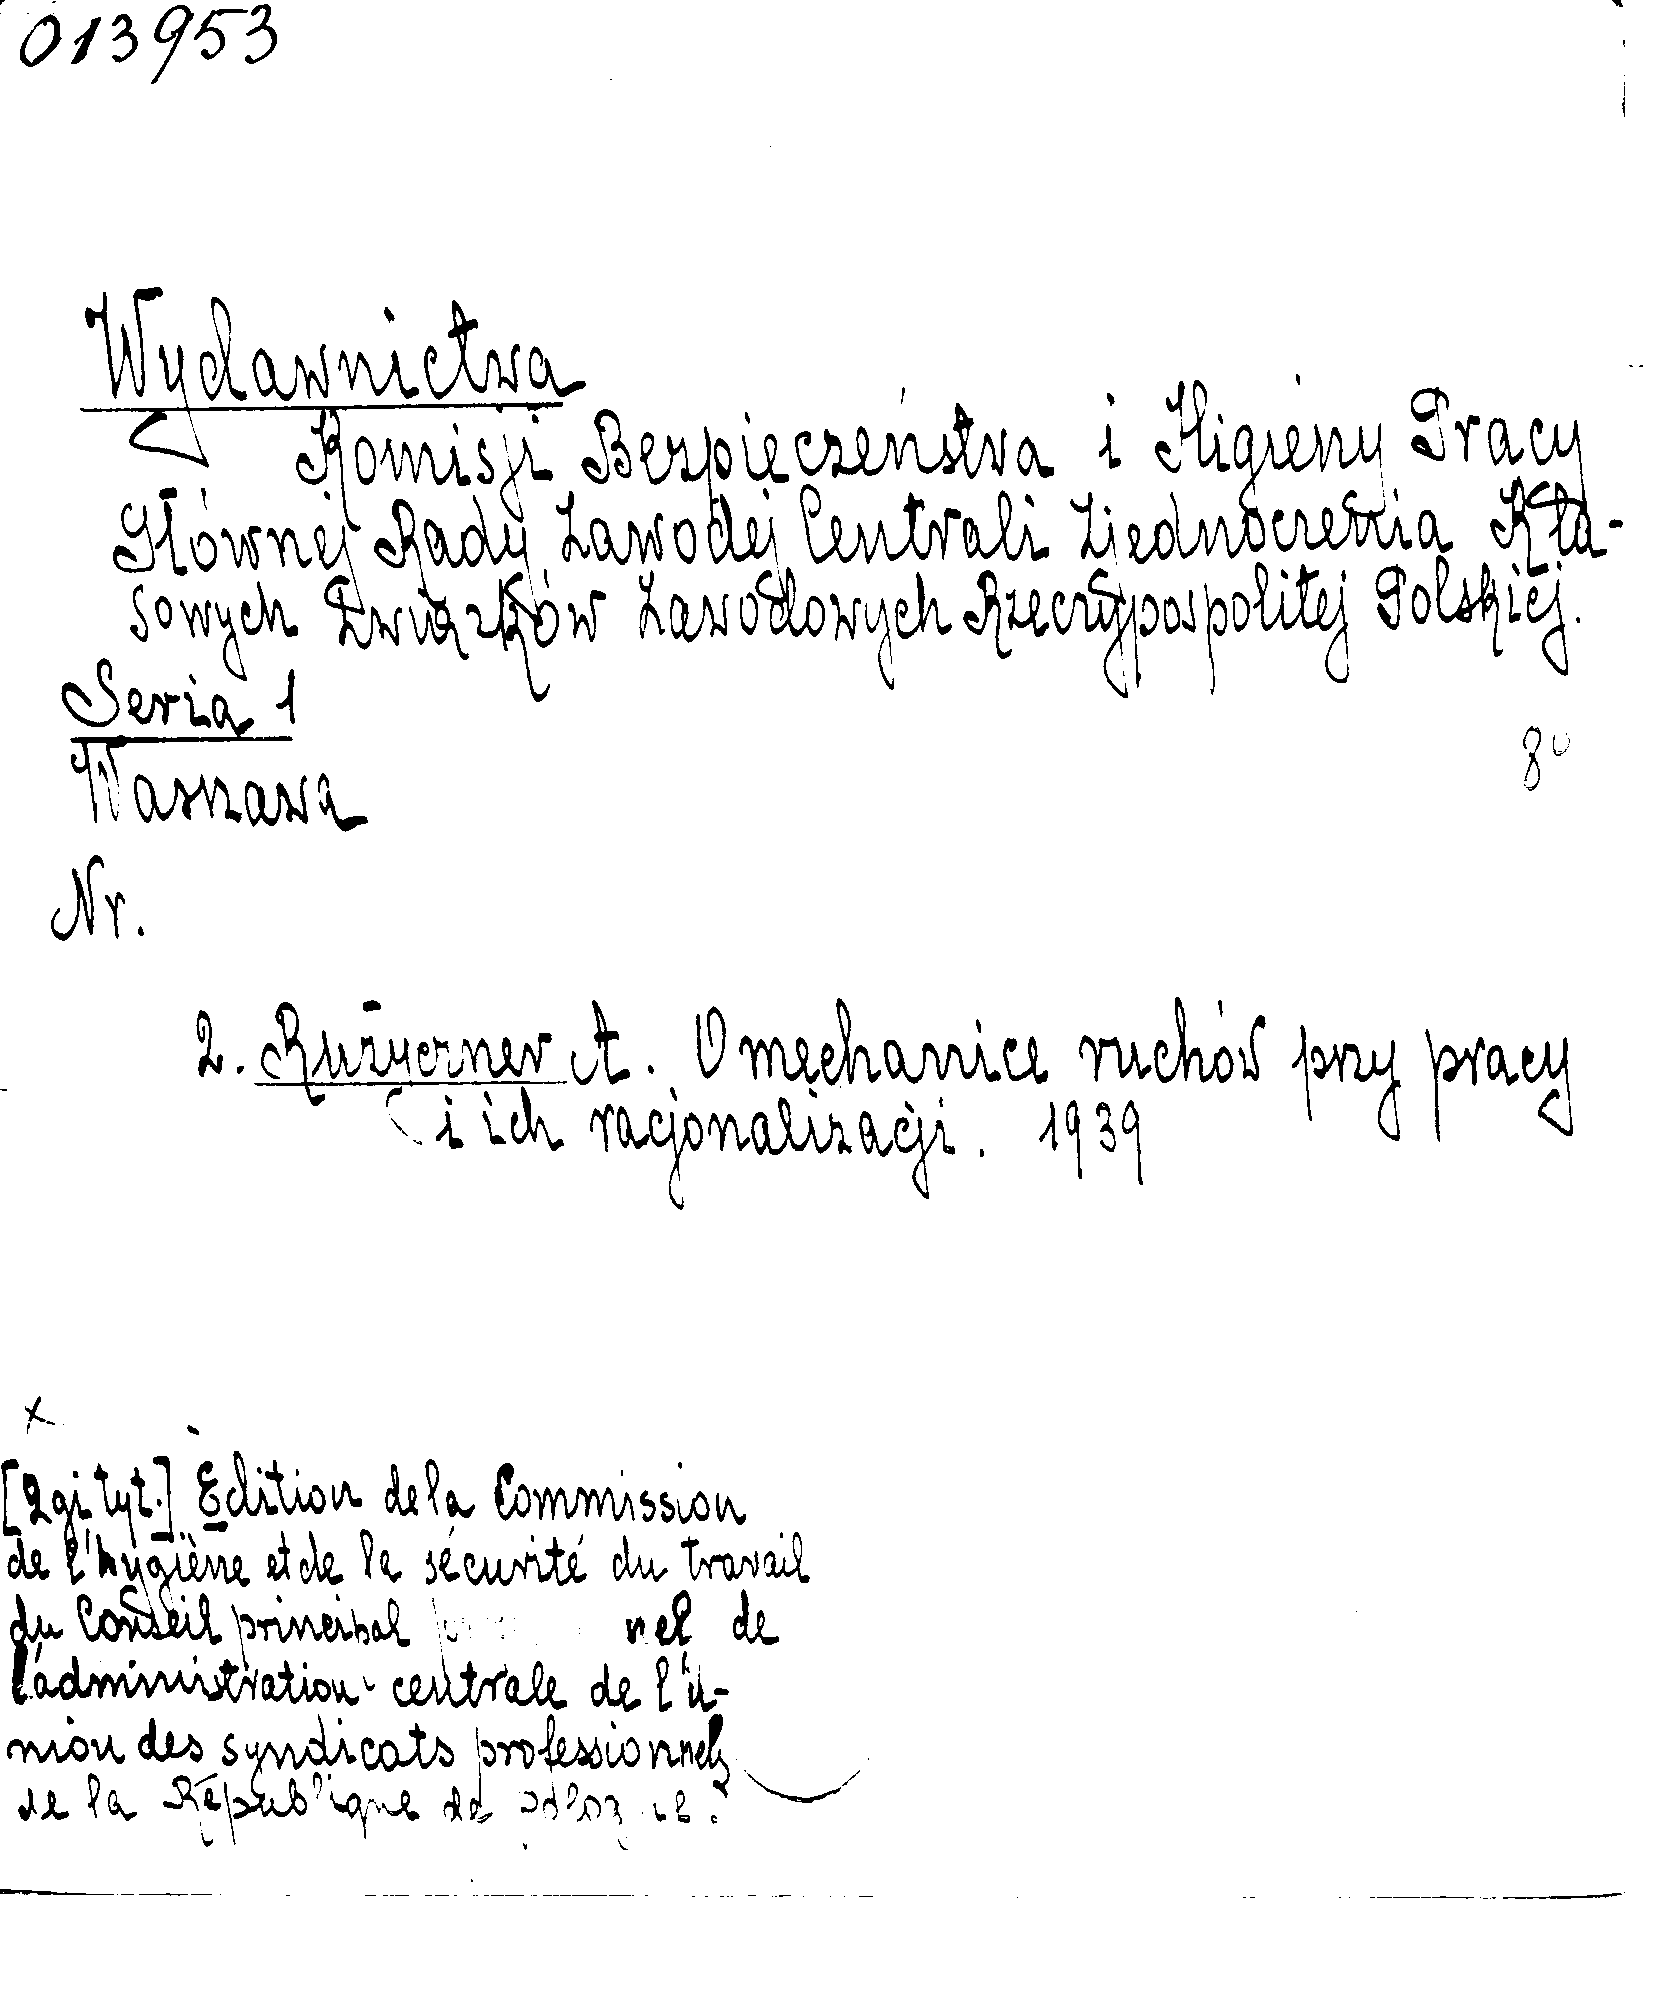 013953
Wydawnictwa
Komisji Bezpieczeństwa i Higieny Pracy
Głównej Rady Zawodej Centrali Zjednoczenia Kla-
sowych Związków Zawodowych Rzeczypospolitej Polskiej.
Seria 1
8°
Warszawa
Nr.
2. Rużyczner A. O mechanice ruchów przy pracy
i ich racjonalizacji. 1939
x
[2gi tyt.] Édition de la Commission
de l'hygiène et de la sécurité du travail
du Conseil principal nel de
l'administration centrale de l'u-
nion des syndicats professionnels
de la République de